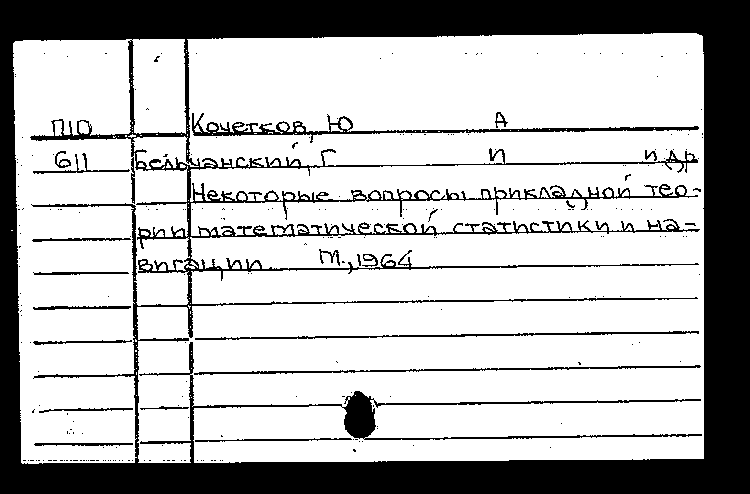 П10 Кочетков, Ю А
611 Бельчанский, Г П и др
Некоторые вопросы прикладной тео-
рии математической статистики и на=
вигации М., 1964